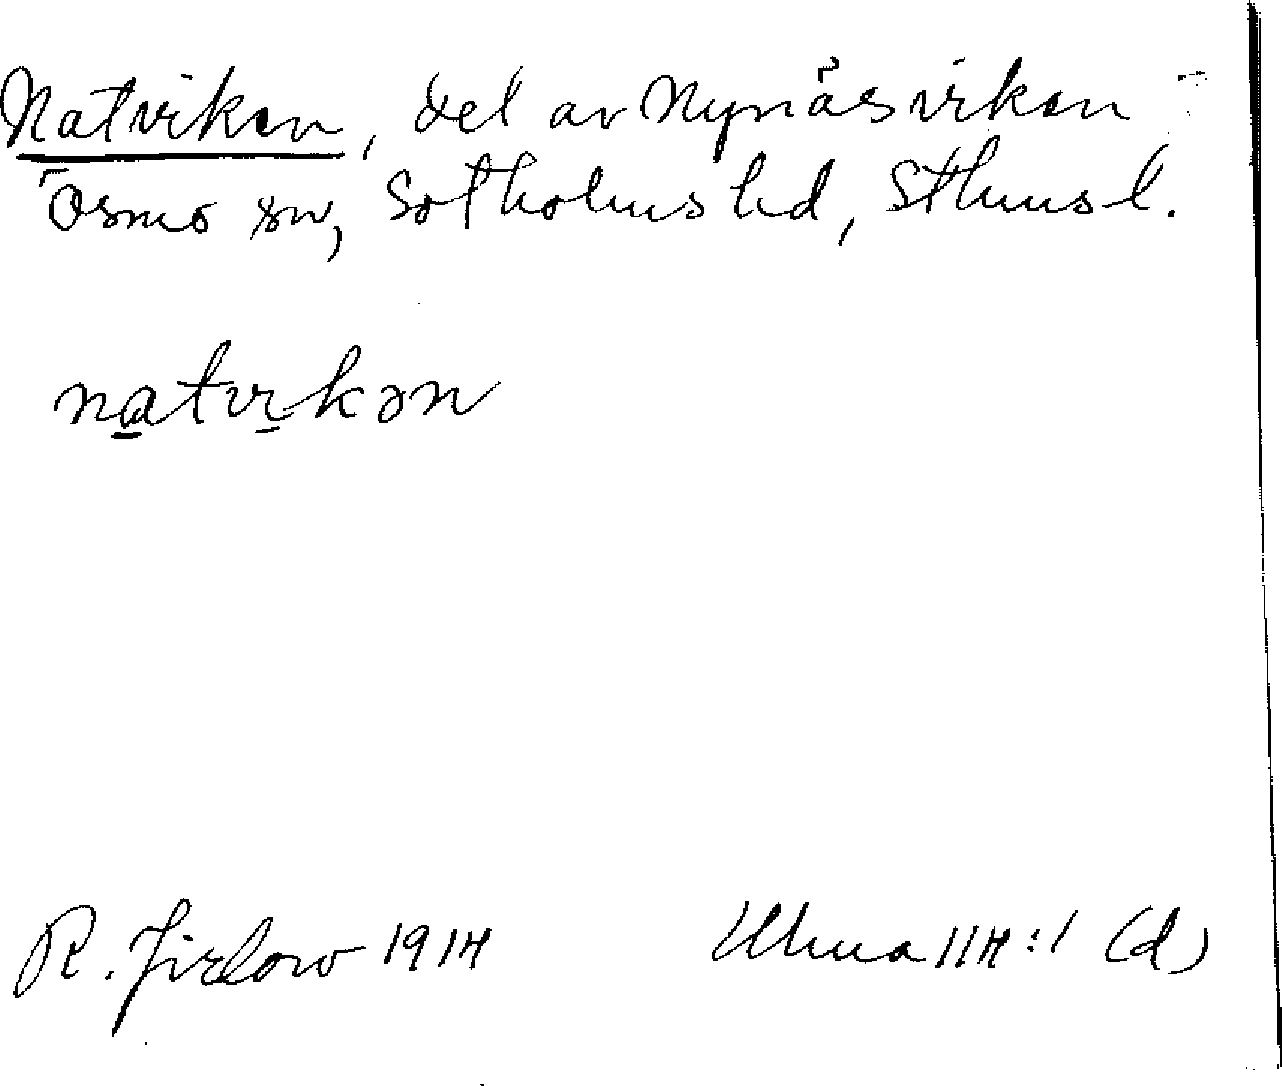 Natviken, del av Nynäsviken
Ösmo sn, Sotholms hd, Sthms l.
natvikən
R. Jirlow 1914
Ulma 114:1 (d)